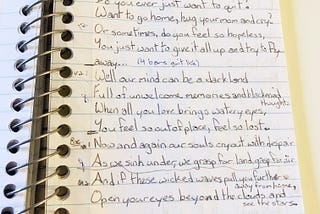 Do you ever just want to quit?
Want to go home, hug your mom and cry?
Or sometimes, do you feel so hopeless,
You just want to give it all up and try to fly
away...
Well our mind can be a dark land
Full of unwelcome memories and blackened
thoughts
When all you love brings watery eyes,
You feel so out of place, feel so lost.
Now and again our souls cry out with despair
As we sink under, we grasp for land, gasp for air
And if these wicked waves pull you further
away from home,
Open your eyes beyond the clouds and
see the stars